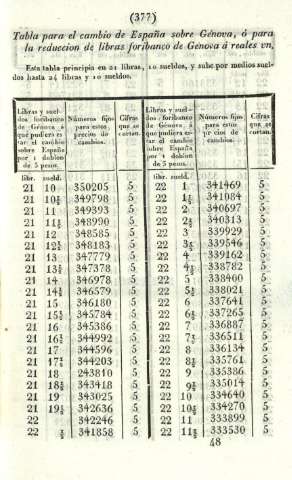 (377)
Tabla para el cambio de España sobre Génova, ó para
la reduccion de libras foribanco de Génova á reales vn.
Esta tabla principia en 21 libras, 10 sueldos, y sube por medios suel-
dos hasta 24 libras y 10 sueldos.
Libras y suel-
dos foribanco
de Génova á
que pudiera es-
tar el cambio
sobre España
por 1 doblon
de 5 pesos.
Números fijos
para estos
precios de
cambios.
Cifras
que se
cortan.
Libras y suel-
dos foribanco
de Génova á
que pudiera es-
tar el cambio
sobre España
por 1 doblon
de 5 pesos.
Números fijos
para estos
precios de
cambios.
Cifras
que se
cortan.
libr. sueld.
libr. sueld.
21 10 350205 5 22 1 341469 5
21 10½ 349798 5 22 1½ 341084 5
21 11 349393 5 22 2 340697 5
21 11½ 348990 5 22 2½ 340313 5
21 12 348585 5 22 3 339929 5
21 12½ 348183 5 22 3½ 339546 5
21 13 347779 5 22 4 339162 5
21 13½ 347378 5 22 4½ 338782 5
21 14 346978 5 22 5 338400 5
21 14½ 346579 5 22 5½ 338021 5
21 15 346180 5 22 6 337641 5
21 15½ 345784 5 22 6½ 337265 5
21 16 345386 5 22 7 336887 5
21 16½ 344992 5 22 7½ 336511 5
21 17 344596 5 22 8 336134 5
21 17½ 344203 5 22 8½ 335761 5
21 18 243810 5 22 9 335386 5
21 18½ 343418 5 22 9½ 335014 5
21 19 343025 5 22 10 334640 5
21 19½ 342636 5 22 10½ 334270 5
22 342246 5 22 11 333899 5
22 ½ 341858 5 22 11½ 333530 5
48